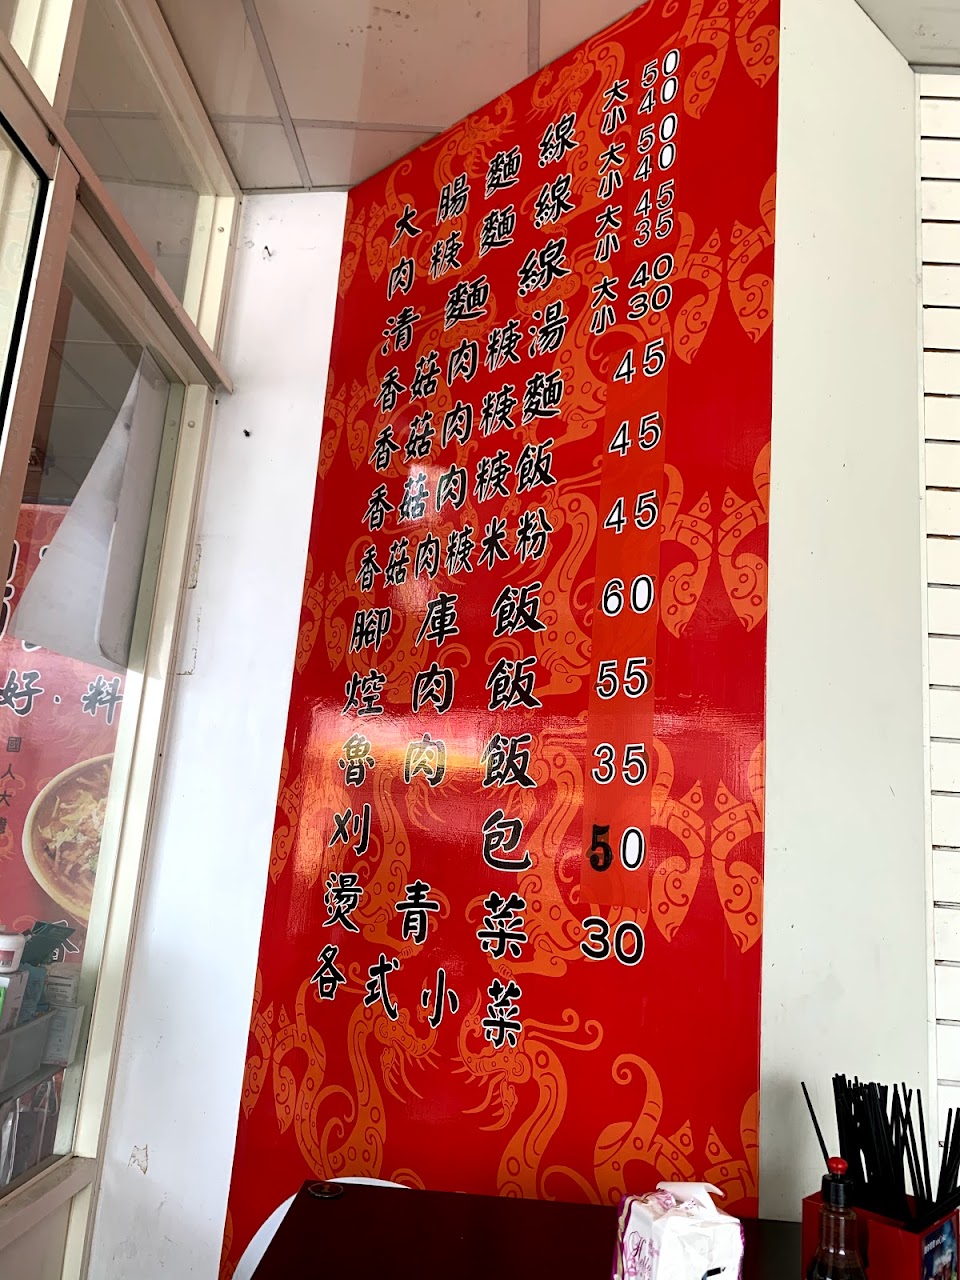 大腸麵線 大50 小40
肉焿麵線 大50 小40
清麵線 大45 小35
香菇肉焿湯 大40 小30
香菇肉焿麵 45
香菇肉焿飯 45
香菇肉焿米粉 45
腳庫飯 60
焢肉飯 55
魯肉飯 35
刈包 50
燙青菜 30
各式小菜
好·料
個人大